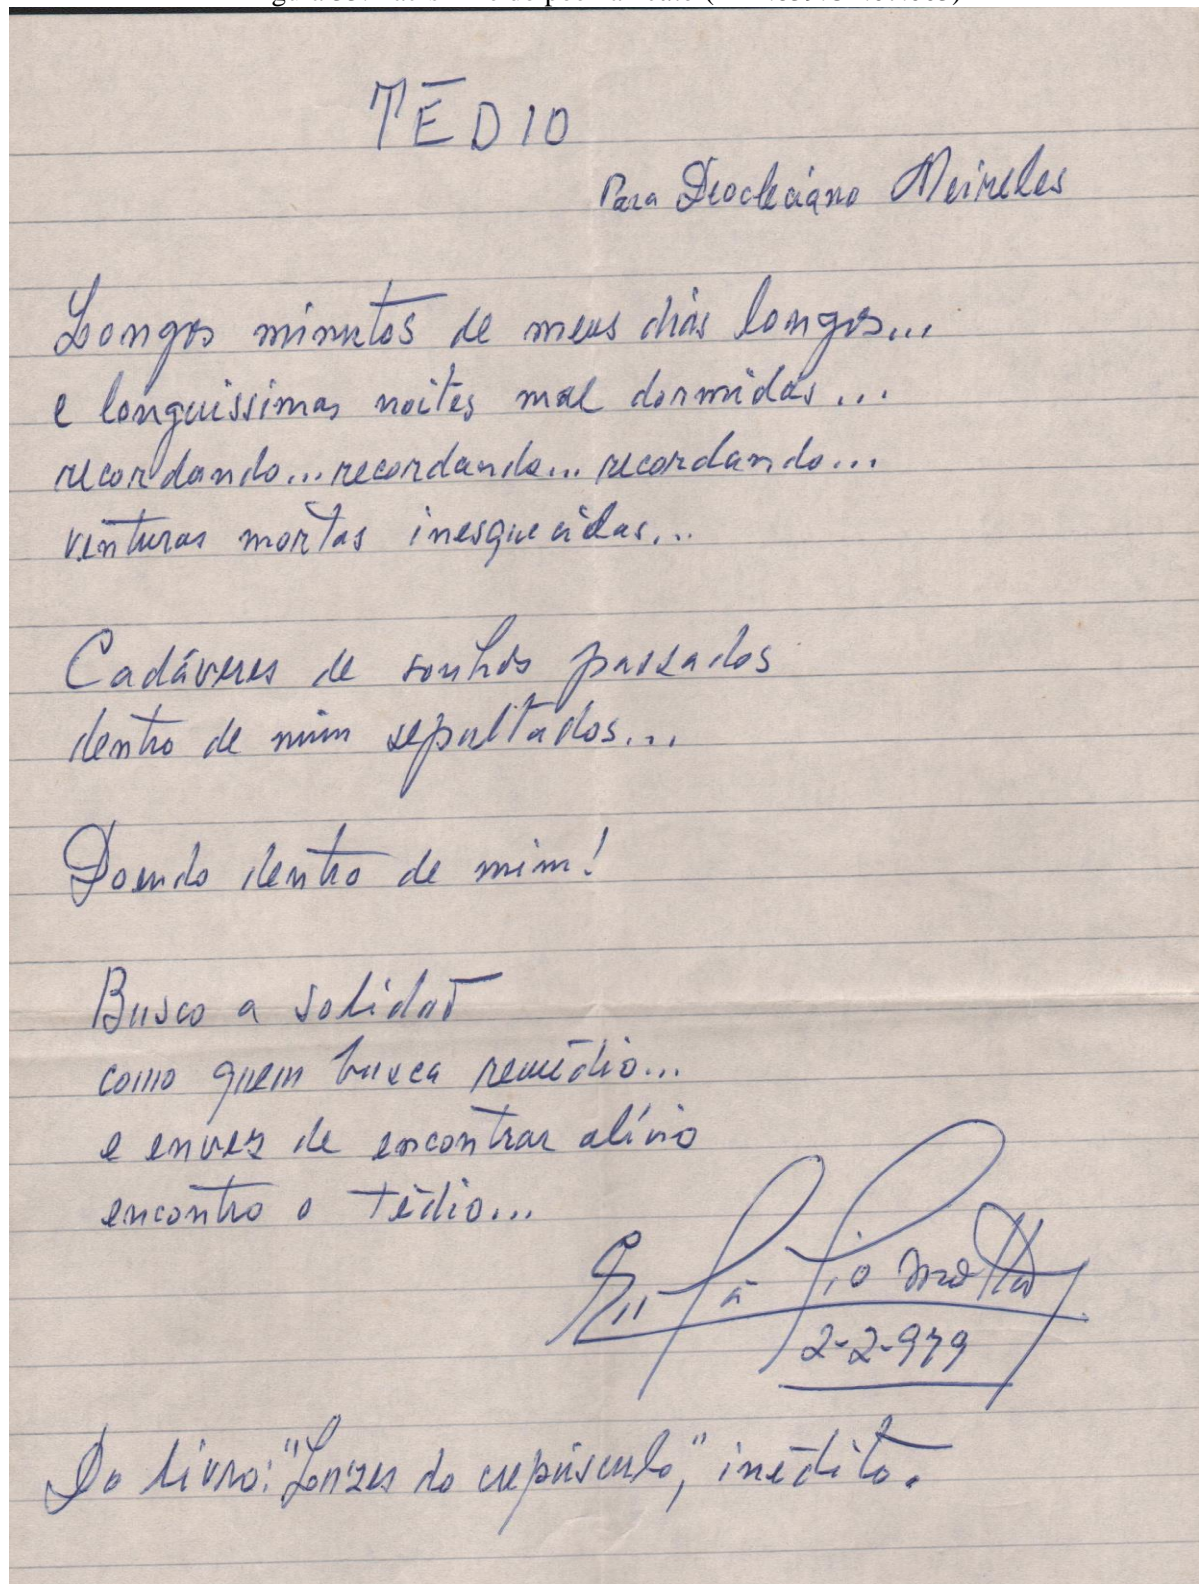 TÉDIO
Para Deocleciano Meireles
Longos minutos de meus dias longos...
e longuissimas noites mal dormidas...
recordando... recordando... recordando...
venturas mortas inesquecidas...
Cadáveres de sonhos passados
dentro de mim sepultados...
Doendo dentro de mim!
Busco a solidão
como quem busca remédio...
e envez de encontrar alívio
encontro o tédio...
2-2-979
Do livro: "Luzes do crepúsculo," inédito.